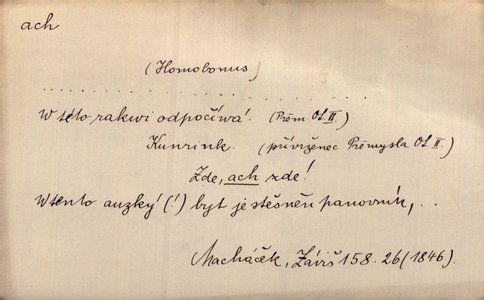 ach
(Homobonus)
. . . . . . . . . . . . . . . . . . . . . . . . . .
W této rakwi odpočíwá. (Přem Ot. II)
Kunrink. (přívrženec Přemysla Ot. II.)
Zde, ach zde!
W tento auzký (!) byt je stěsněn panovník, . .
Macháček, Záviš 158. 26 (1846).